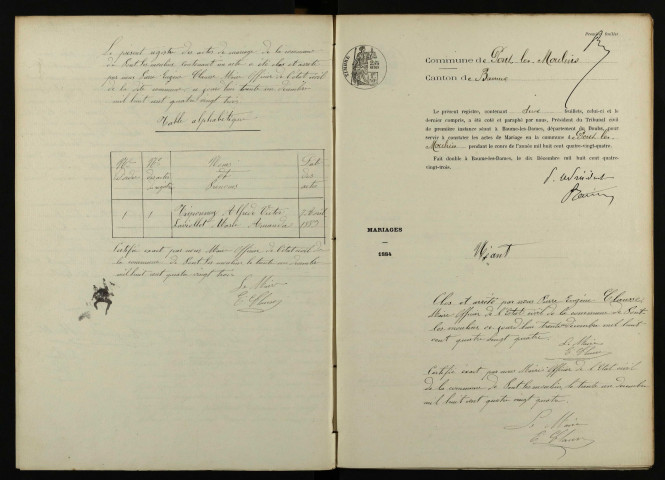 Le présent registre des actes de mariage de la commune
de Pont les moulins, contenant un acte a été clos et arrêté
par nous Pierre Eugène Clausse Maire Officier de l'état civil
de la dite commune, ce jour d'hui trente un décembre
mil huit cent quatre vingt trois.
Table alphabétique
Nos d'ordre
Nos des actes au registre
Noms et Prénoms
Date des actes
1
1
Alfred Victor
Marie Armanda
Avril 1883
Certifié exact par nous Maire Officier de l'état civil de
la commune de Pont les moulins le trente un décembre
mil huit cent quatre vingt trois
Le Maire
E. Clausse
TIMBRE
feuillet.
Commune de Pont-les-Moulins
Canton de Baume
Le présent registre, contenant deux feuillets, celui-ci et le
dernier compris, a été coté et paraphé par nous, Président du Tribunal civil
de première instance séant à Baume-les-Dames, département du Doubs, pour
servir à constater les actes de Mariage en la commune de Pont-les-
Moulins pendant le cours de l'année mil huit cent quatre-vingt-quatre.
Fait double à Baume-les-Dames, le dix Décembre mil huit cent quatre-
vingt-trois.
Le Président
MARIAGES
—
1884
Néant
Clos et arrêté par nous Pierre Eugène Clausse
Maire Officier de l'Etat civil de la commune de Pont
les moulins ce jourd'hui trente décembre mil huit
cent quatre vingt quatre
Le Maire
E. Clausse
Certifié exact par nous Maire Officier de l'Etat civil
de la commune de Pont les moulins le trente un décembre
mil huit cent quatre vingt quatre.
Le Maire
E. Clausse